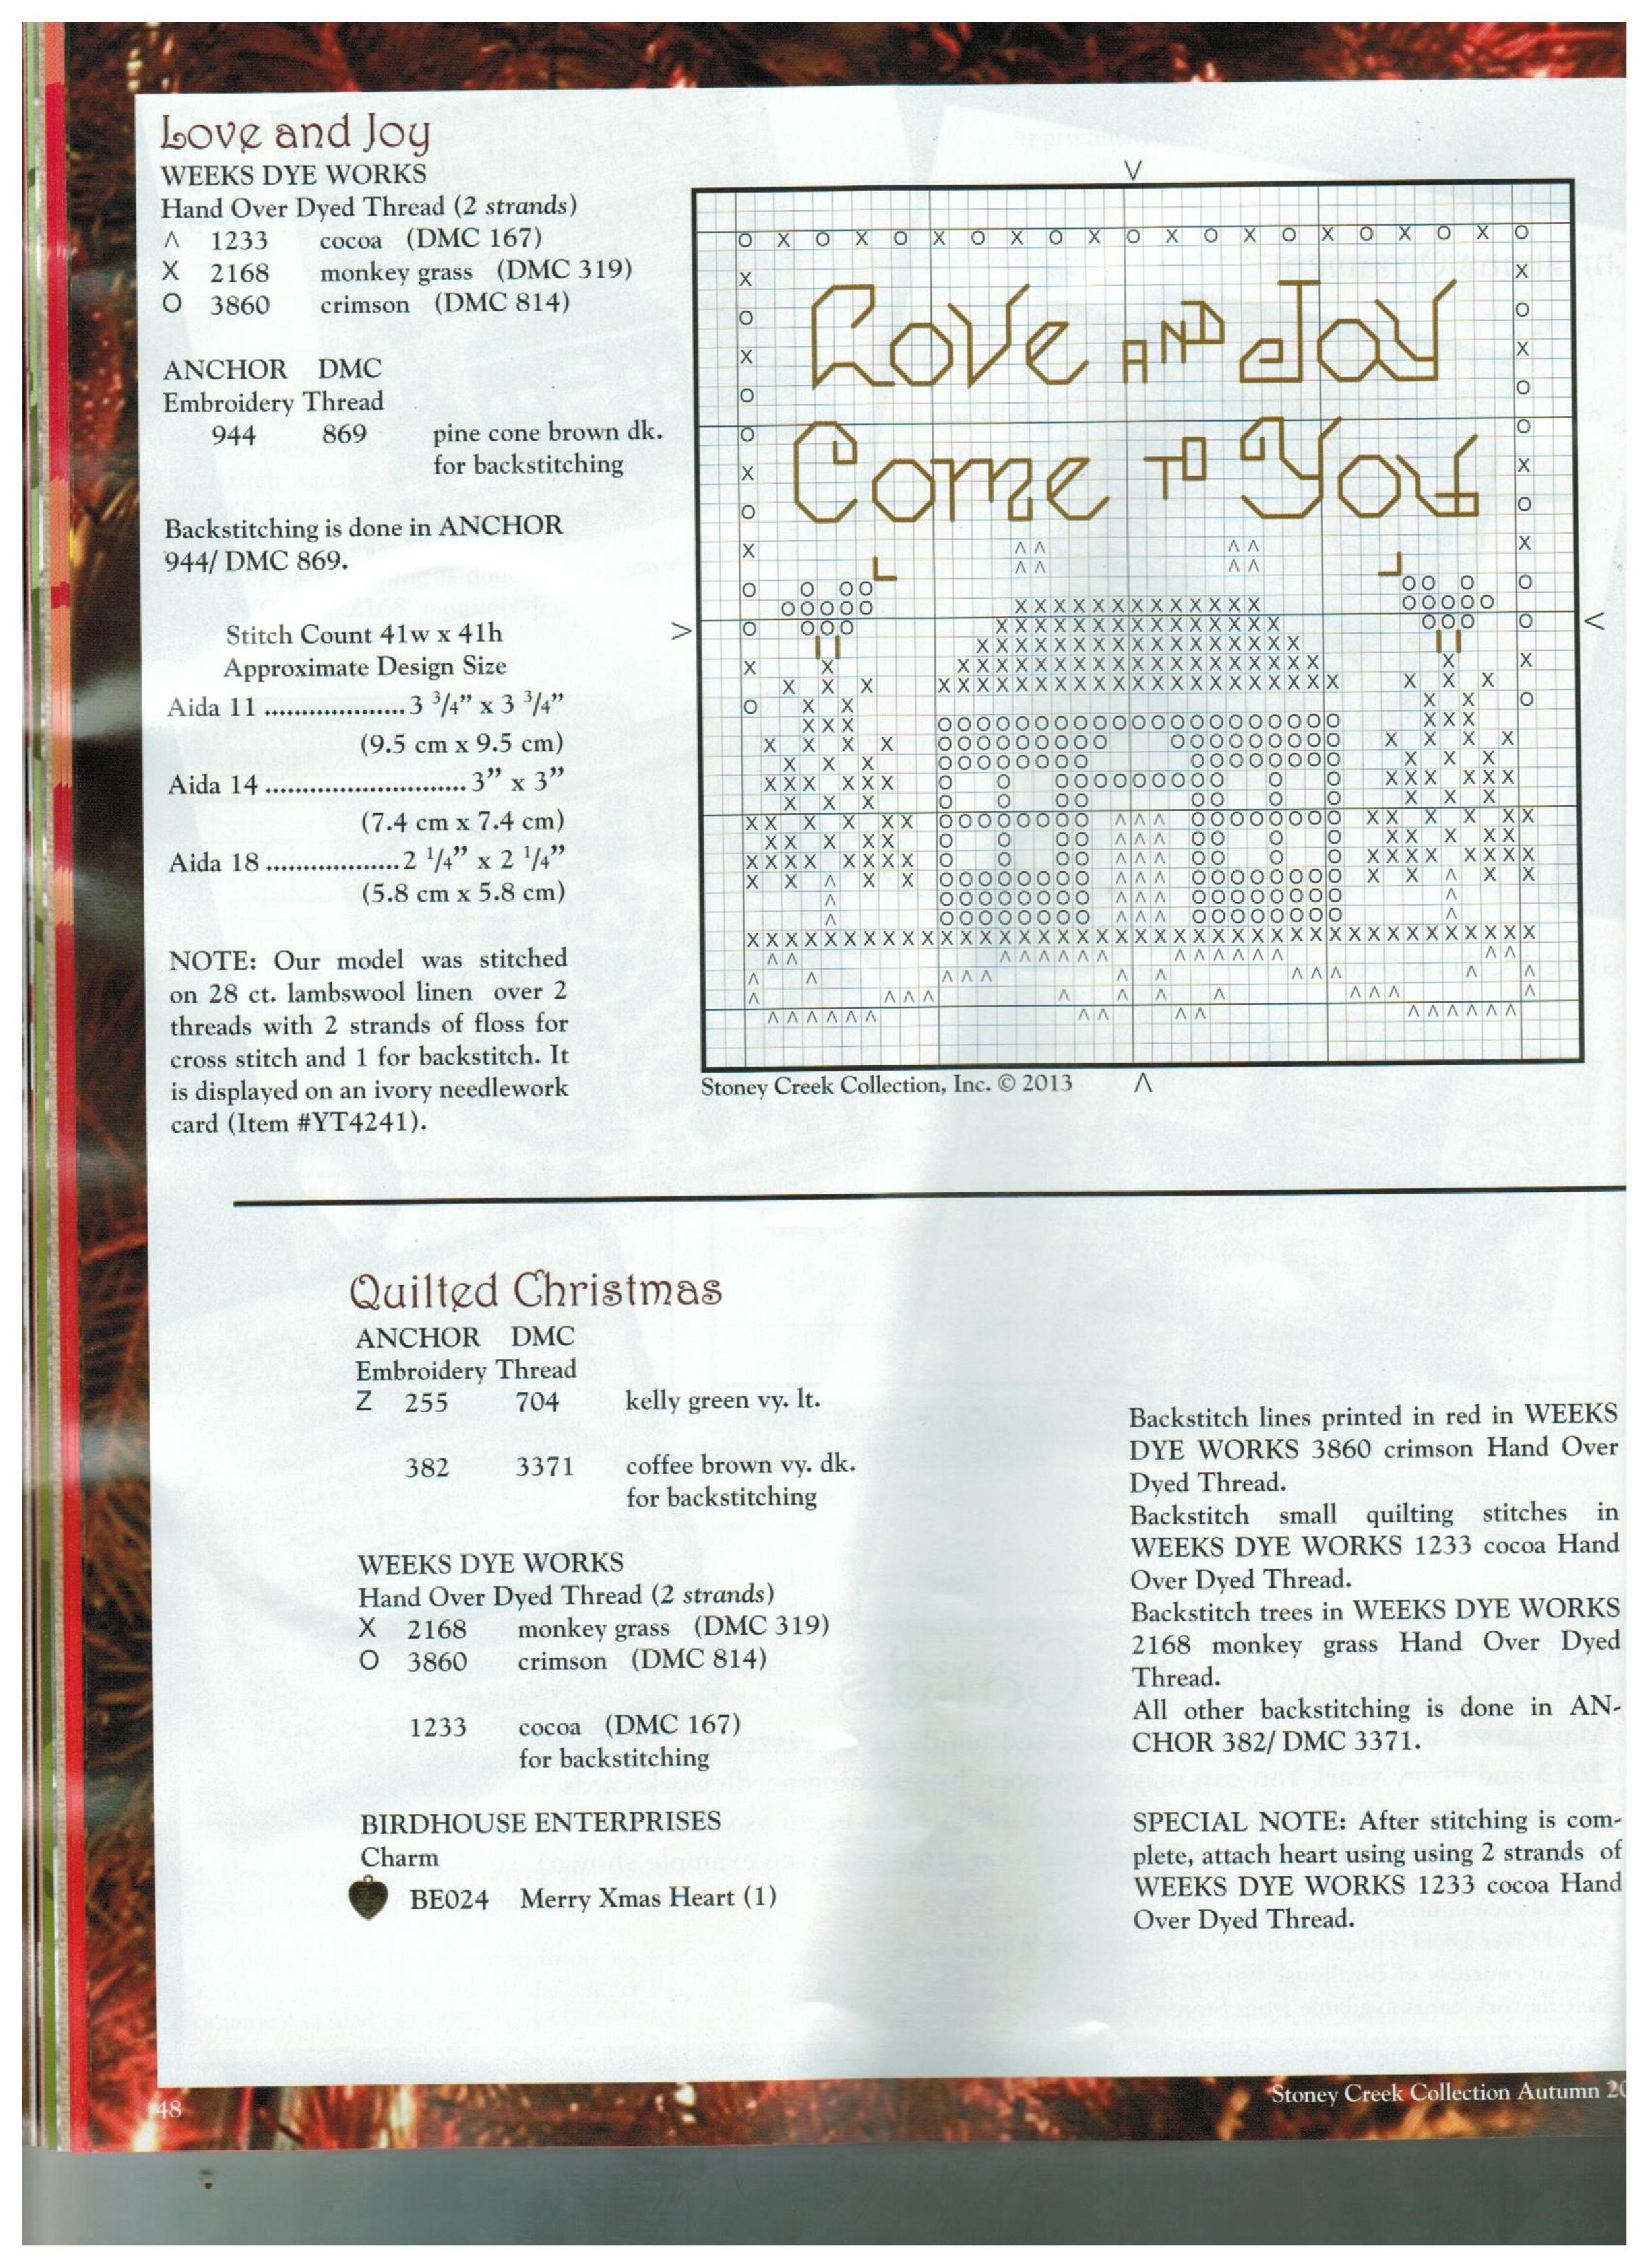 Love and Joy
WEEKS DYE WORKS
Hand Over Dyed Thread (2 strands)
Λ 1233 cocoa (DMC 167)
X 2168 monkey grass (DMC 319)
O 3860 crimson (DMC 814)
ANCHOR DMC
Embroidery Thread
944 869 pine cone brown dk.
for backstitching
Backstitching is done in ANCHOR
944/ DMC 869.
Stitch Count 41w x 41h
Approximate Design Size
Aida 11 ................... 3 3/4" x 3 3/4"
(9.5 cm x 9.5 cm)
Aida 14 ........................... 3" x 3"
(7.4 cm x 7.4 cm)
Aida 18 .................. 2 1/4" x 2 1/4"
(5.8 cm x 5.8 cm)
NOTE: Our model was stitched
on 28 ct. lambswool linen over 2
threads with 2 strands of floss for
cross stitch and 1 for backstitch. It
is displayed on an ivory needlework
card (Item #YT4241).
Love AND Joy
Come TO You
Stoney Creek Collection, Inc. © 2013
Quilted Christmas
ANCHOR DMC
Embroidery Thread
Z 255 704 kelly green vy. lt.
382 3371 coffee brown vy. dk.
for backstitching
WEEKS DYE WORKS
Hand Over Dyed Thread (2 strands)
X 2168 monkey grass (DMC 319)
O 3860 crimson (DMC 814)
1233 cocoa (DMC 167)
for backstitching
BIRDHOUSE ENTERPRISES
Charm
BE024 Merry Xmas Heart (1)
Backstitch lines printed in red in WEEKS
DYE WORKS 3860 crimson Hand Over
Dyed Thread.
Backstitch small quilting stitches in
WEEKS DYE WORKS 1233 cocoa Hand
Over Dyed Thread.
Backstitch trees in WEEKS DYE WORKS
2168 monkey grass Hand Over Dyed
Thread.
All other backstitching is done in AN-
CHOR 382/ DMC 3371.
SPECIAL NOTE: After stitching is com-
plete, attach heart using using 2 strands of
WEEKS DYE WORKS 1233 cocoa Hand
Over Dyed Thread.
48
Stoney Creek Collection Autumn 20